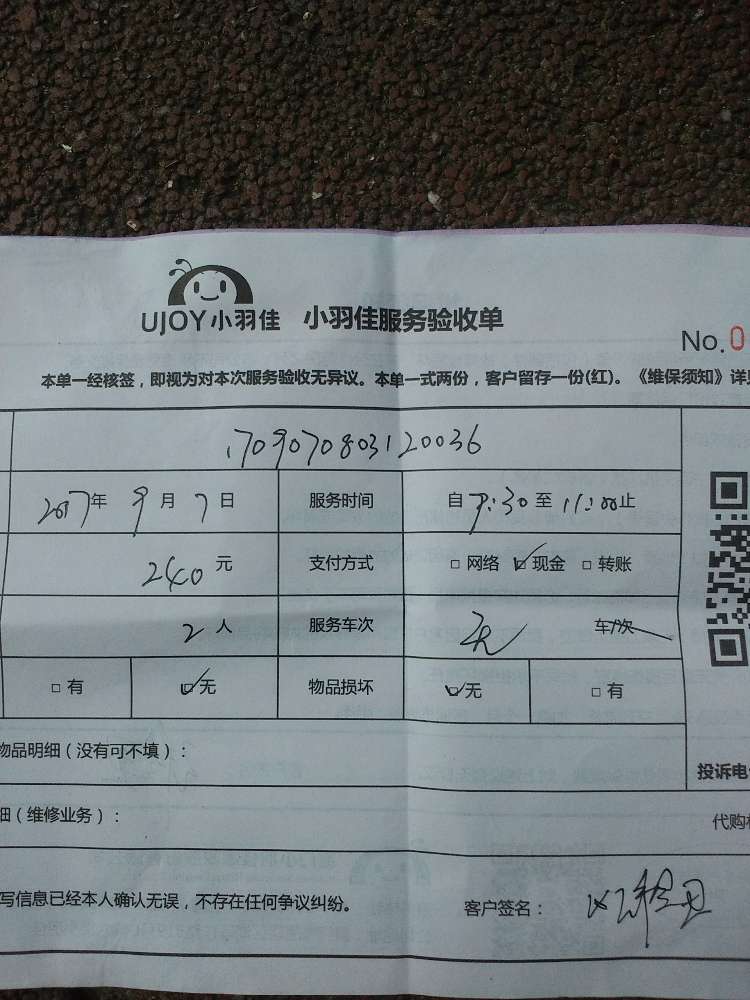 UJOY小羽佳 小羽佳服务验收单
No.0
本单一经核签，即视为对本次服务验收无异议。本单一式两份，客户留存一份(红)。《维保须知》详见
1709070803120036
2017年 9月 7日 服务时间 自9:30至11:00止
240元 支付方式 □网络 ☑现金 □转账
2人 服务车次 无 车/次
□有 ☑无 物品损坏 ☑无 □有
物品明细（没有可不填）：
投诉电
细（维修业务）：
代购
写信息已经本人确认无误，不存在任何争议纠纷。 客户签名：